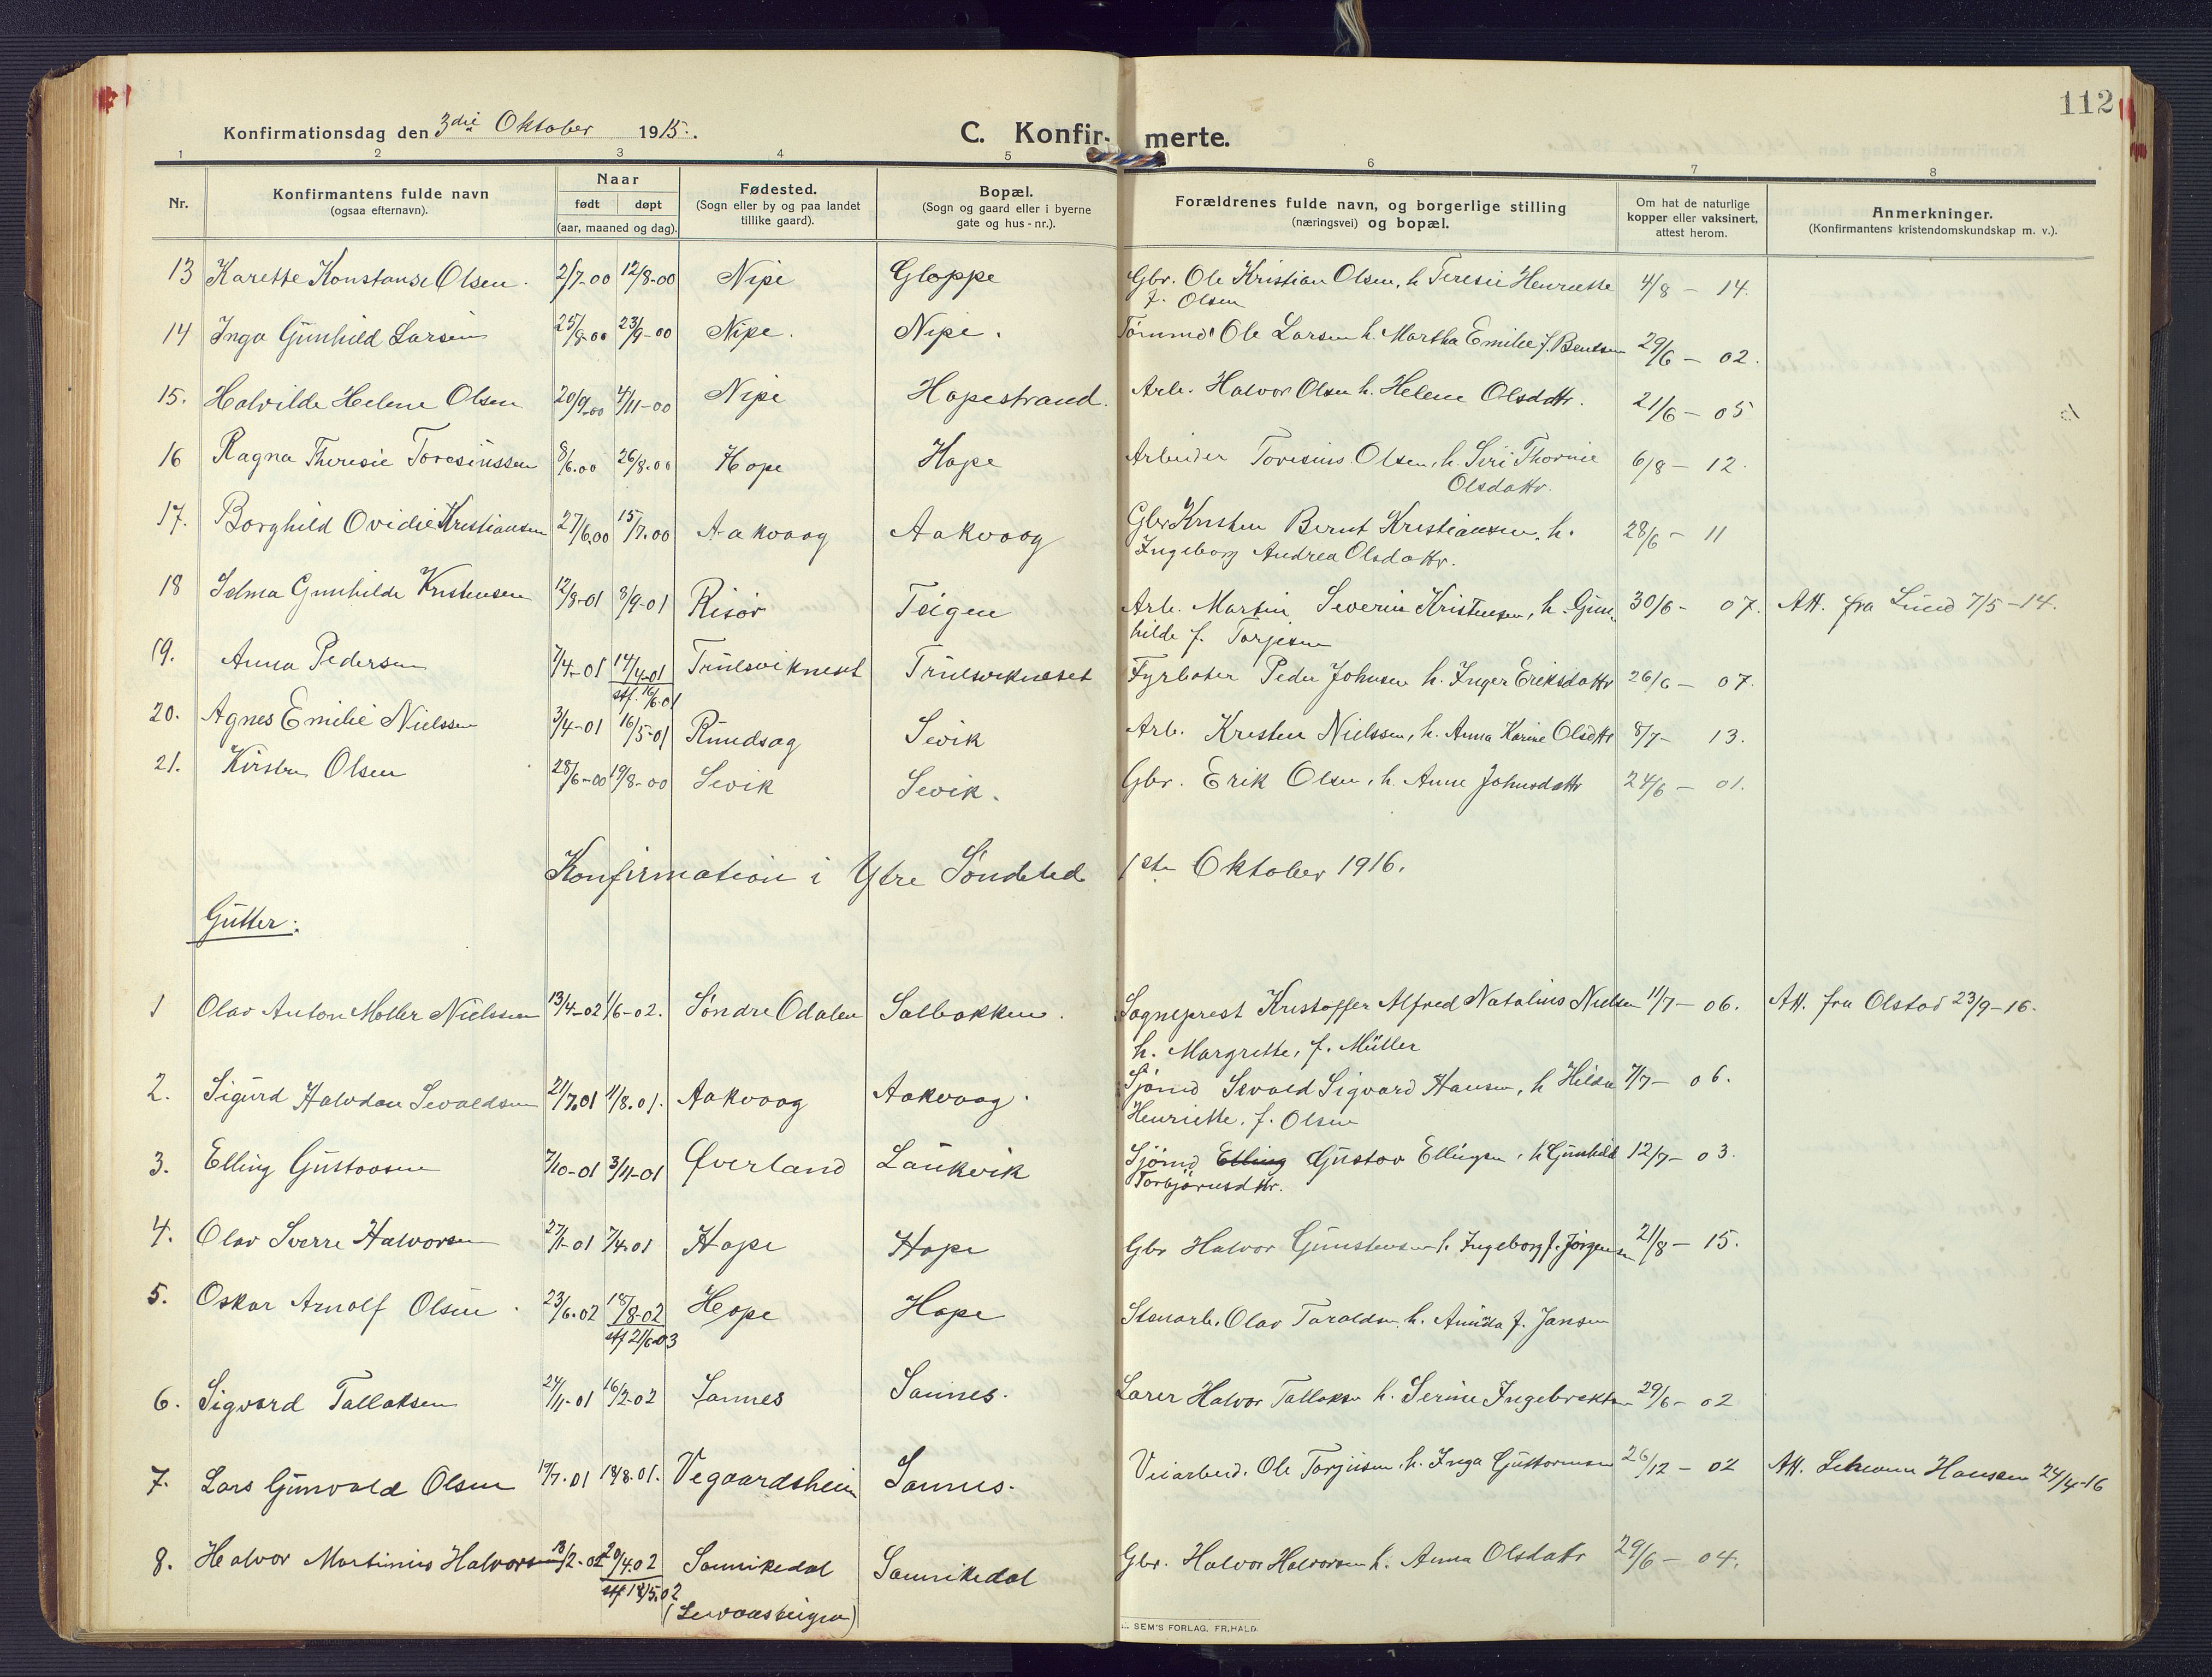 112
Konfirmationsdag den 3die Oktober 1915.
C. Konfir- merte.
1 2 3 4 5 6 7 8
Nr. Konfirmantens fulde navn (ogsaa efternavn). Naar født døpt (aar, maaned og dag). Fødested. (Sogn eller by og paa landet tillike gaard). Bopæl. (Sogn og gaard eller i byerne gate og hus-nr.). Forældrenes fulde navn, og borgerlige stilling (næringsvei) og bopæl. Om hat de naturlige kopper eller vaksinert, attest herom. Anmerkninger. (Konfirmantens kristendomskundskap m. v.).
13 Karette Konstanse Olsen. 2/7-00 12/8-00 Nipe Gloppe Gbr. Ole Kristian Olsen, h. Teresie Henriette 4/8 - 14.
f. Olsen
14 Inga Gunhild Larsen 25/8-00 23/9-00 Nipe. Nipe. Tömmd. Ole Larsen h. Martha Emilie f. Bentsen 29/6 - 02.
15. Halvilde Helene Olsen 20/9-00 4/11-00 Nipe Hopestrand. Arb. Halvor Olsen h. Helene Olsdattr. 21/6 - 05
16 Ragna Theresie Toresinssen 8/6.00 26/8.00 Hope Hope Arbeider Toresius Olsen, h. Siri Thorine 6/8 - 12.
Olsdattr.
17. Borghild Ovidie Kristiansen 27/6.00 15/7.00 Aakvaag Aakvaag Gbr Kristen Bernt Kristiansen, h. 28/6 - 11
Ingeborg Andrea Olsdattr.
18 Selma Gunhilde Kristensen 12/8-01 8/9-01 Risör Teigen Arb. Martin Severin Kristensen, h. Gun- 30/6 - 07. Att. fra Lund 7/5-14.
hilde f. Torjesen
19. Anna Pedersen 7/4-01 14/4-01 Truelsvikneset Truelsvikneset Fyrböter Peder Johnsen h. Inger Eriksdattr 26/6 - 07.
stf. 16/6.01
20. Agnes Emilie Nielssen 3/4-01 16/5-01 Rundsag Sevik Arb. Kristen Nielssen, h. Anna Karine Olsdttr 8/7 - 13.
21. Kirsten Olsen 28/6-00 19/8-00 Sevik Sevik. Gbr. Erik Olsen, h. Anne Johnsdattr 24/6 - 01.
Konfirmation i Ytre Söndeled 1ste Oktober 1916.
Gutter:
1 Olav Anton Møller Nielssen 13/4-02 1/6-02. Söndre Odalen Solbakken. Sogneprest Kristoffer Alfred Natalius Nielsen 11/7 - 06. Att. fra Olstad 23/9-16.
h. Margrethe, f. Müller
2. Sigurd Halvdan Sevaldsen 21/7.01 11/8.01. Aakvaag Aakvaag. Sjömd Sevald Sigvard Hansen, h Hilda 7/7 - 06.
Henriette, f. Olsen
3. Elling Gustavsen 7/10-01 3/11-01 Øverland Laukvik Sjömd Elling Gustav Ellingsen, h Gunhild 12/7 - 03.
Torbjörnsdttr.
4. Olav Sverre Halvorsen 27/1-01 7/4.01 Hope Hope Gbr Halvor Gunstensen h. Ingeborg f. Jörgensen 21/8 - 15.
5. Oskar Arnolf Olsen 23/6.02 18/8-02 Hope Hope Stenarb. Olav Taraldsen h. Amida f. Jansen
stf 21/6-03
6. Sigvard Tallaksen 24/11-01 16/2-02 Sannes Sannes. Lærer Halvor Tallaksen h. Serine Ingebrektsen 29/6 - 02
7. Lars Gunvald Olsen 19/7.01 18/8.01. Vegaardsheim Sannes. Veiarbeid. Ole Torjusen, h. Inga Guttormsen 26/12 - 02 Att. Lehmann Hansen 24/4-16
8. Halvor Martinius Halvorsen 13/2-02 20/4.02 Sannikedal Sannikedal Gbr. Halvor Halvorsen h. Anna Olsdatr 29/6 - 04.
stf 18/5.02
E. SEM'S FORLAG, FR.HALD.